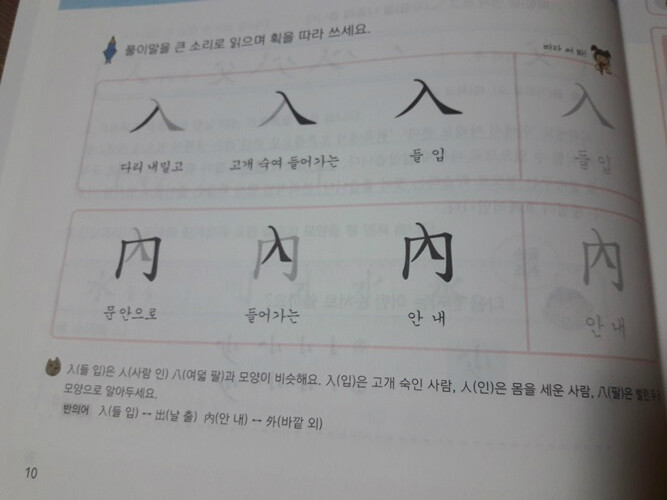 풀이말을 큰 소리로 읽으며 획을 따라 쓰세요.
따라 써 봐!
入 入 入 入
다리 내밀고 고개 숙여 들어가는 들 입 들 입
內 內 內 內
문 안으로 들어가는 안 내 안 내
入(들 입)은 人(사람 인) 八(여덟 팔)과 모양이 비슷해요. 入(입)은 고개 숙인 사람, 人(인)은 몸을 세운 사람, 八(팔)은
모양으로 알아두세요.
반의어 入(들 입) ↔ 出(날 출) 內(안 내) ↔ 外(바깥 외)
10